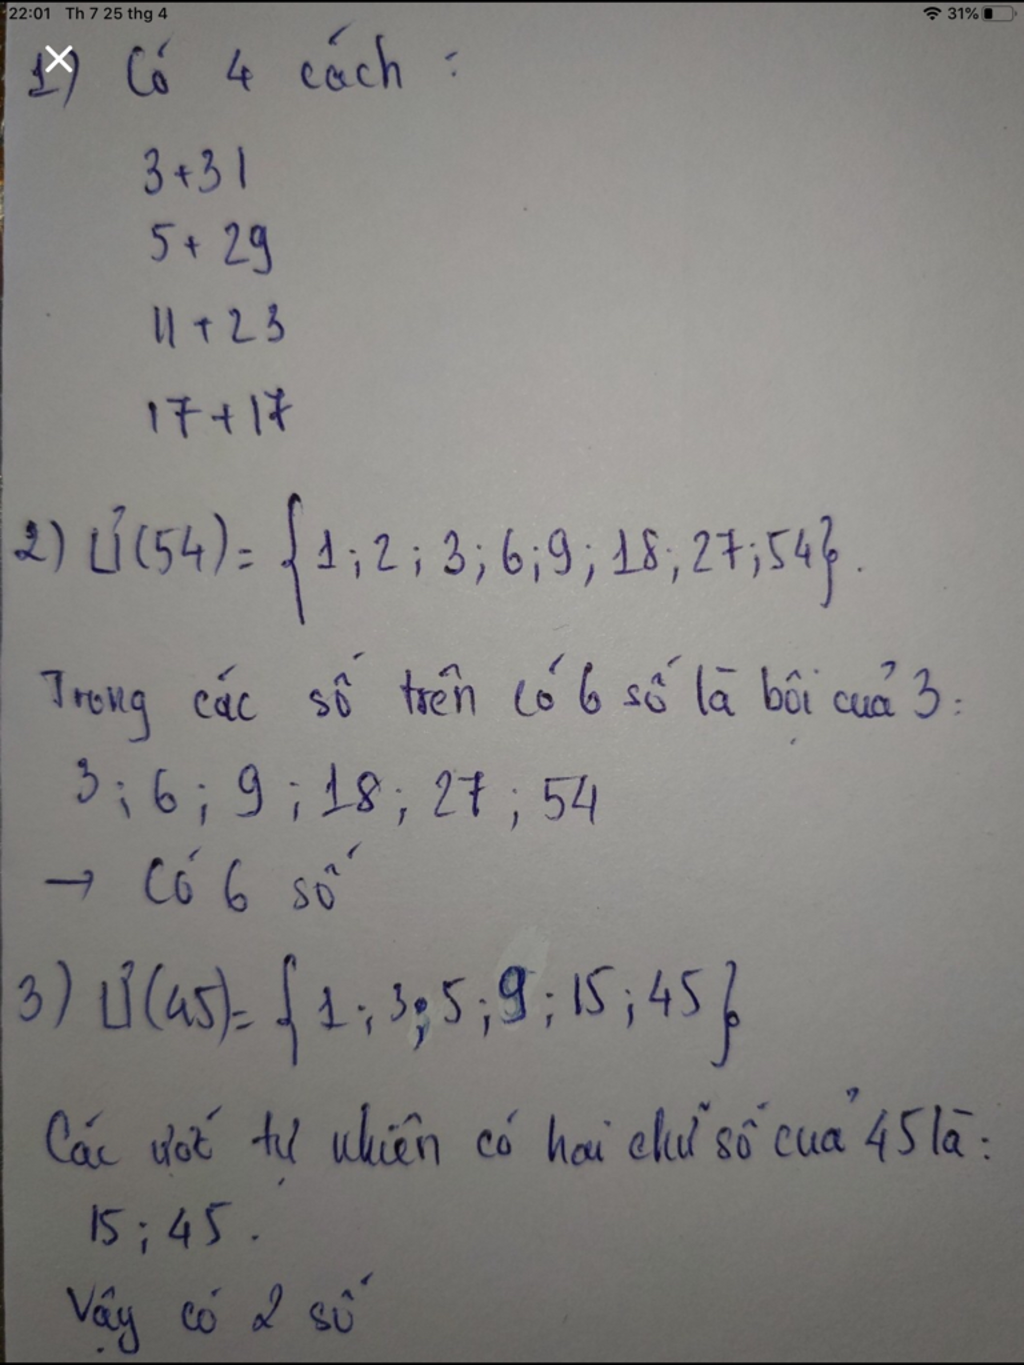 22:01 Th 7 25 thg 4
31%
1) Có 4 cách :
3+31
5+29
11+23
17+17
2) Ư(54)= {1;2;3;6;9;18;27;54}.
Trong các số trên có 6 số là bội cuả 3:
3;6;9;18;27;54
→ Có 6 số
3) Ư(45)= {1;3;5;9;15;45}
Các ước tự nhiên có hai chữ số cuả 45 là:
15;45.
Vậy có 2 số